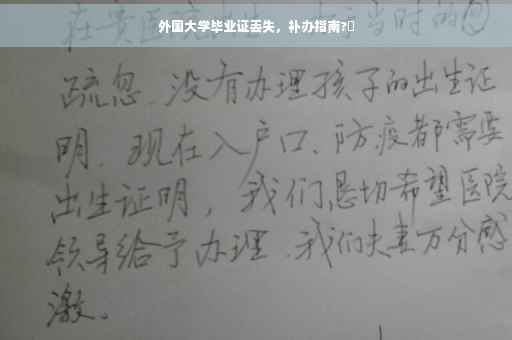 外国大学毕业证丢失，补办指南?
当时的
疏忽、没有办理孩子的出生证
明、现在入户口、防疫都需要
出生证明，我们恳切希望医院
领导给予办理、我们夫妻万分感
激。